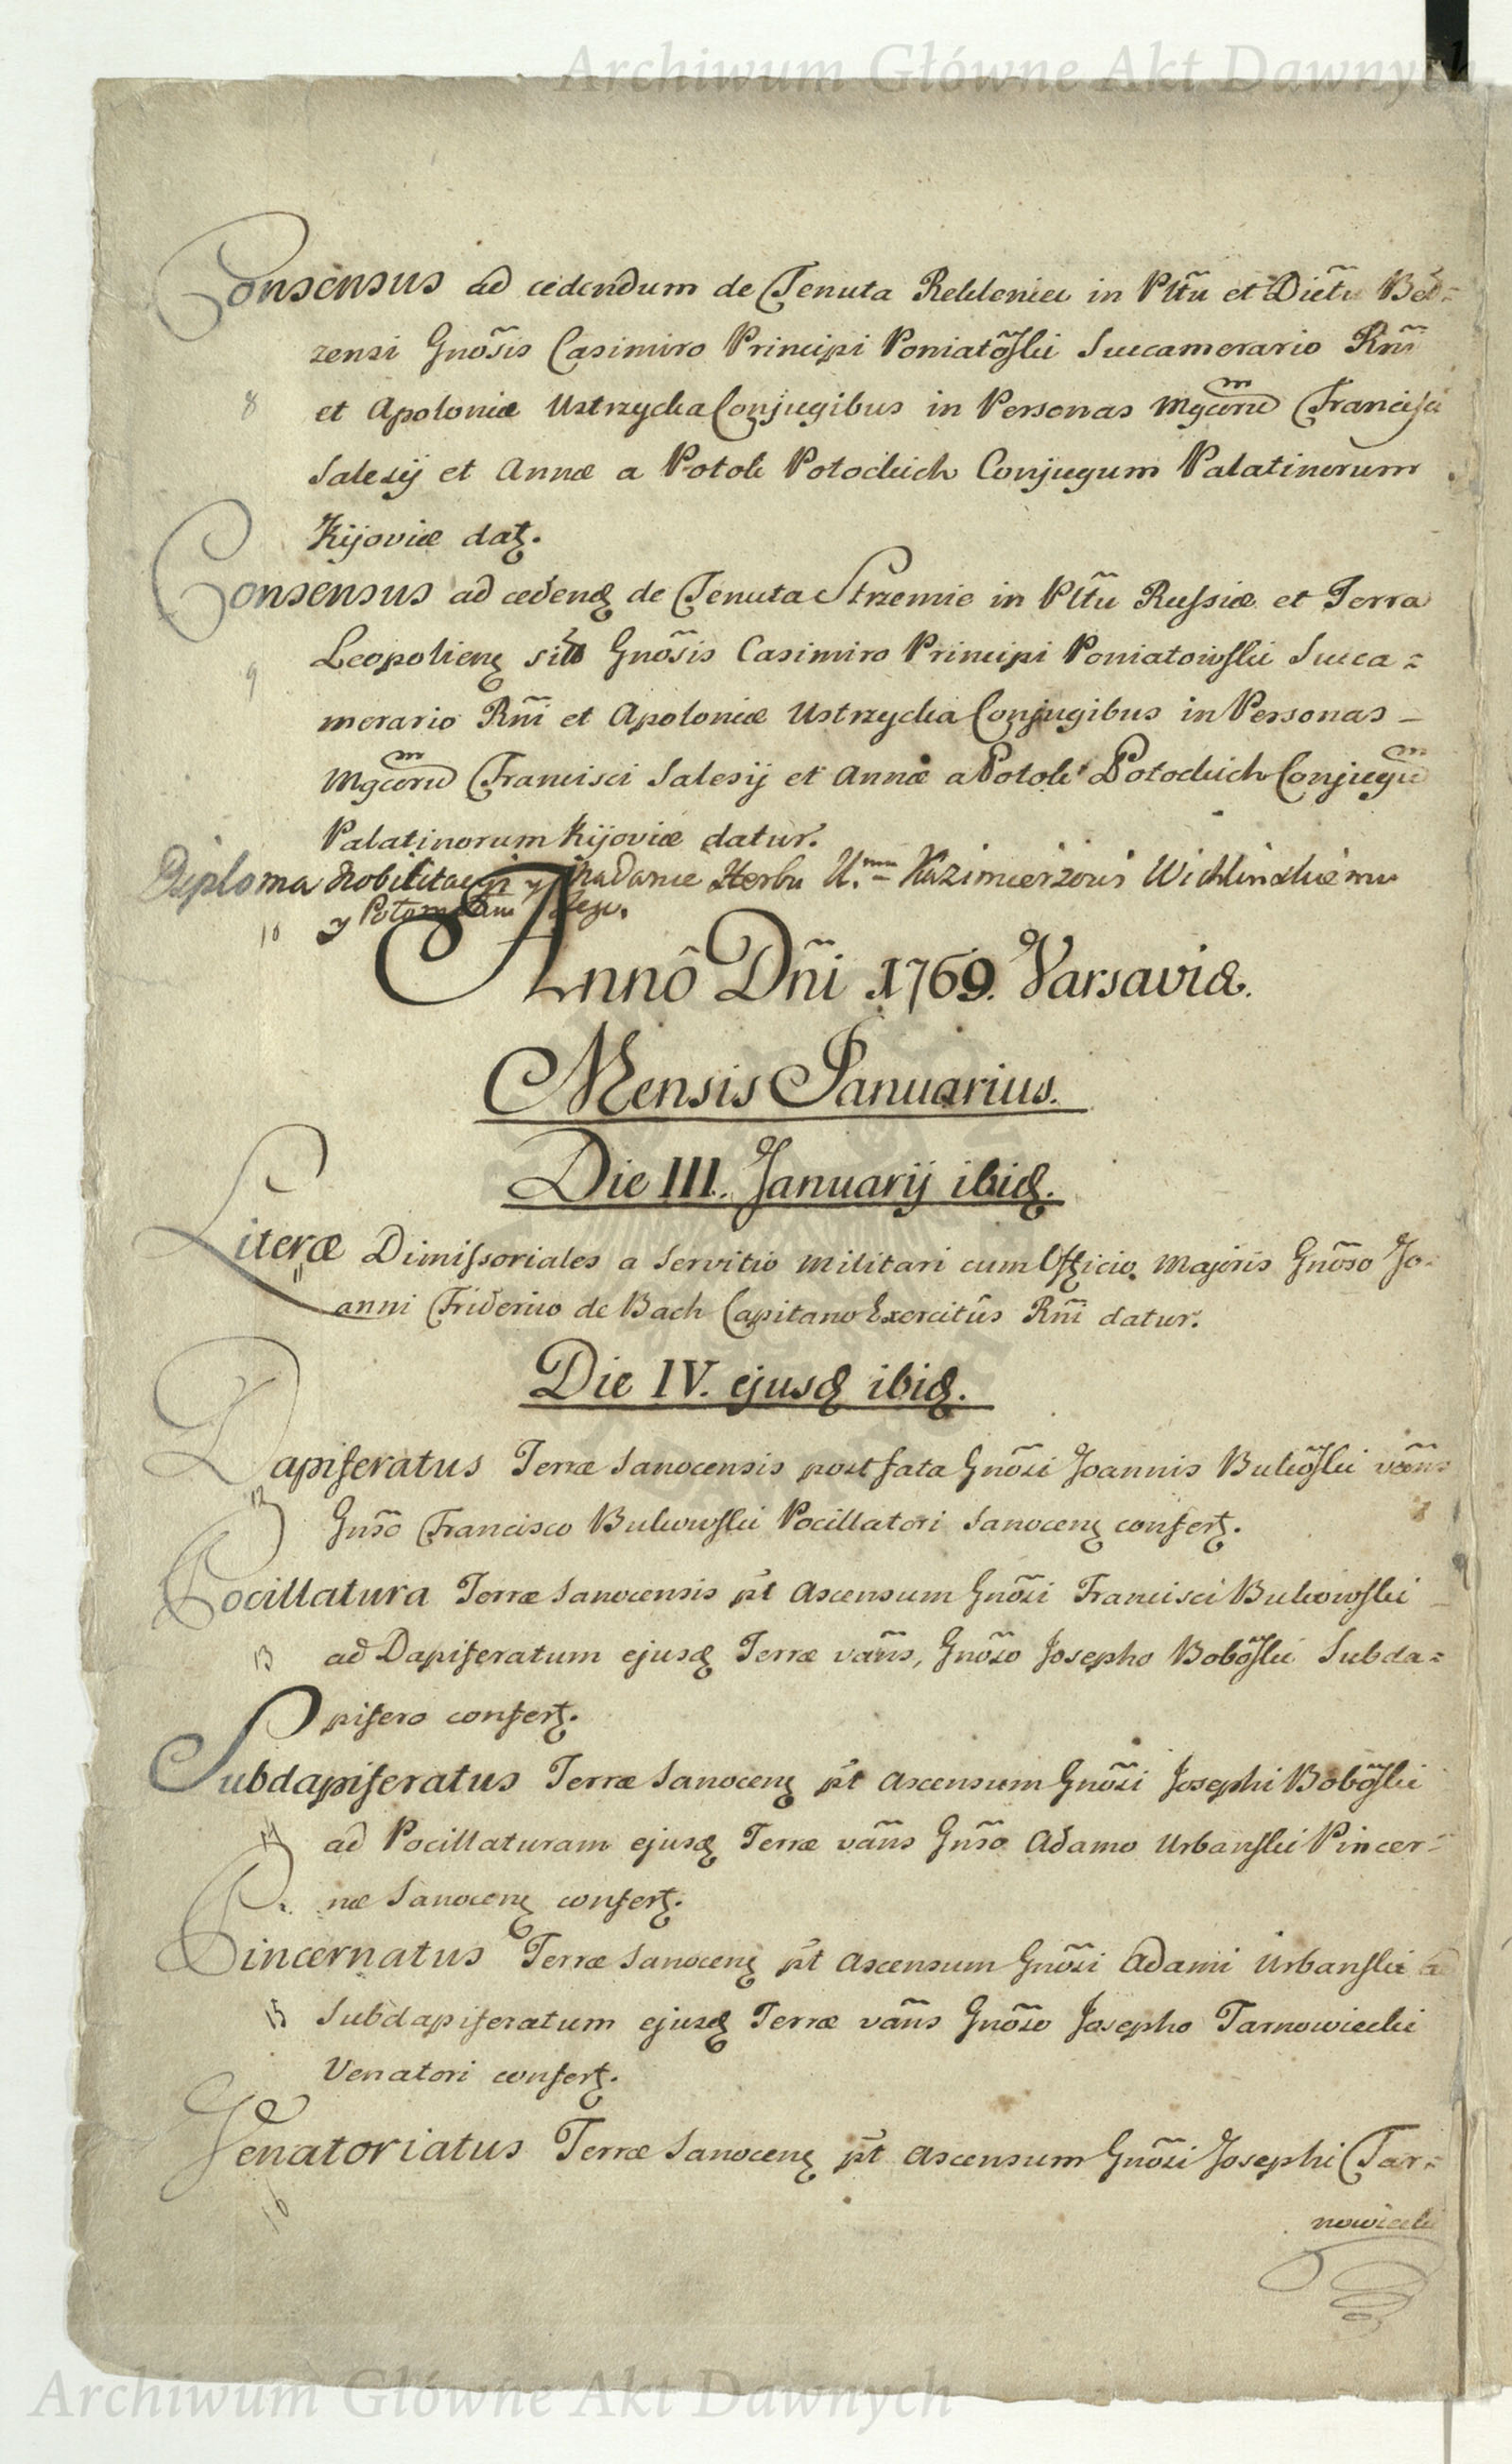 Archiwum Główne Akt Dawnych
Consensus ad cedendum de Tenuta Rekleniec in Pltũ et Dictũ Bel=
zensi Gnõsis Casimiro Principi Poniatõskii Succamerario Rñi
8 et Apoloniæ Ustrzycka Conjugibus in Personas Mgcorũ Francisci
Salesij et Annæ a Potok Potockich Conjugum Palatinorum
Kijoviæ dat.
Consensus ad cedend de Tenuta Strzemie in Pltũ Russiæ et Terra
9 Leopolien sit Gnõsis Casimiro Principi Poniatowskii Succa=
merario Rñi et Apoloniæ Ustrzycka Conjugibus in Personas
Mgcorũ Francisci Salesij et Annæ a Potok Potockich Conjugũ
Palatinorum Kijoviæ datur.
Diploma Nobilitacji y Nadanie Herbu U. Kazimierzowi Wichlinskiemu
10 y Potomkom Jego.
Annô Dñi 1769. Varsaviæ.
Mensis Januarius.
Die III. Januarij ibid.
Literæ Dimissoriales a Servitio Militari cum Officio Majoris Gnõso Jo-
11 anni Friderico de Bach Capitano Exercitûs Rñi datur.
Die IV. ejusd ibid.
Dapiferatus Terræ Sanocensis post fata Gnõsi Joannis Bukõskii vãns
12 Gnso Francisco Bukowskii Pocillatori Sanocen confert.
Pocillatura Terræ Sanocensis pt Ascensum Gnõsi Francisci Bukowskii
13 ad Dapiferatum ejusd Terræ vãns, Gnõso Josepho Bobõskii Subda=
pifero confert.
Subdapiferatus Terræ Sanocen pt Ascensum Gnõsi Josephi Bobõskii
14 ad Pocillaturam ejusd Terræ vãns Gñso Adamo Urbanskii Pincer=
næ Sanocen confert.
Pincernatus Terræ Sanocen pt Ascensum Gnõsi Adami Urbanskii ad
15 Subdapiferatum ejusd Terræ vãns Gnõso Josepho Tarnowieckii
Venatori confert.
Venatoriatus Terræ Sanocen pt Ascensum Gnõsi Josephi Tar=
16
nowieckii
Archiwum Główne Akt Dawnych